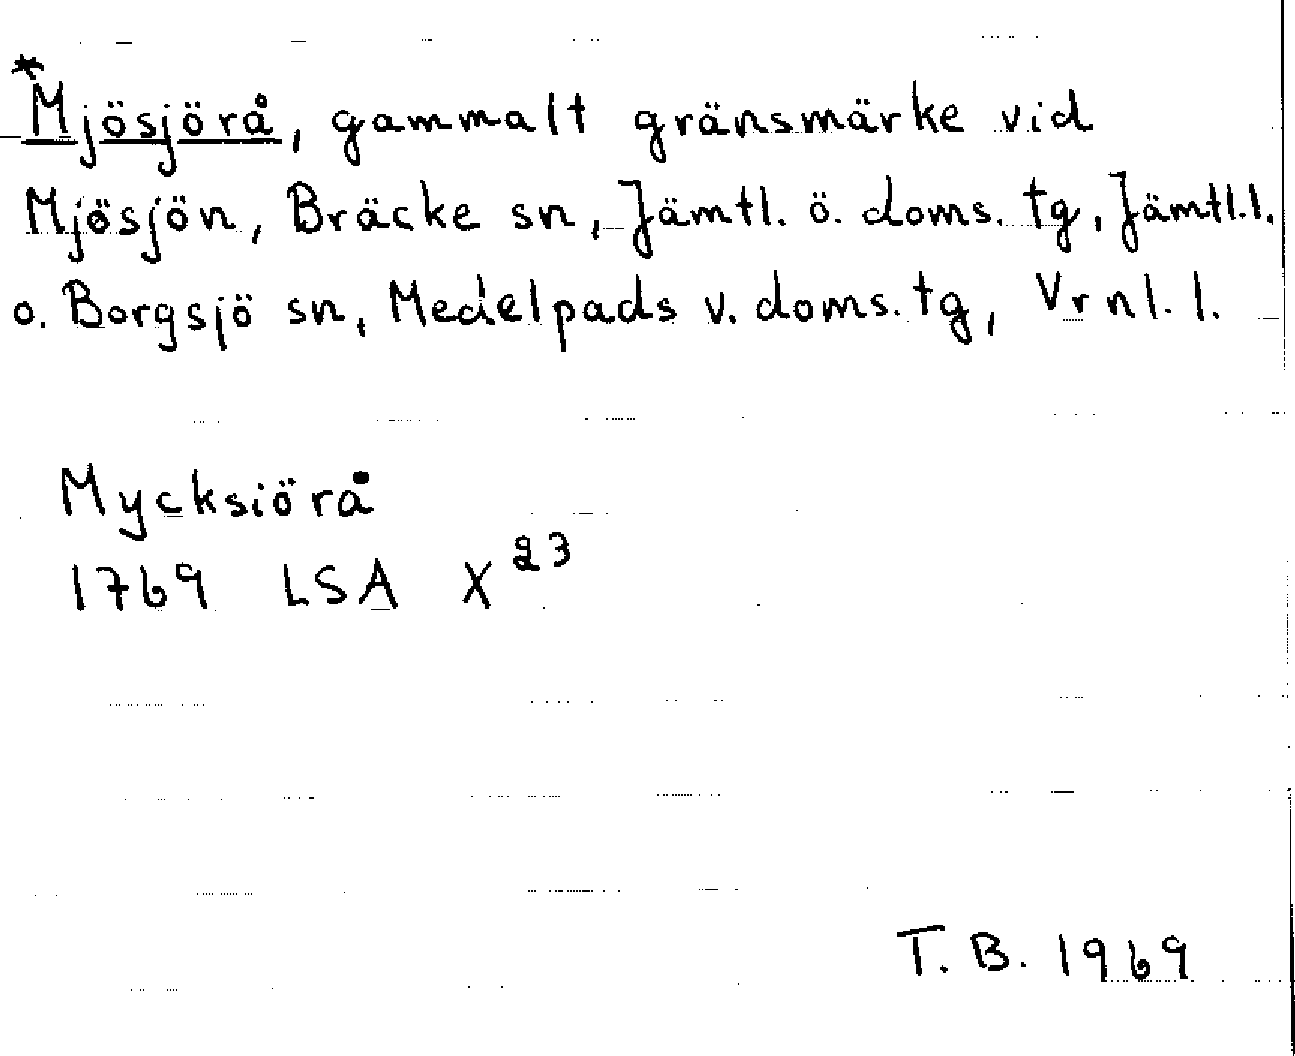 *Mjösjörå, gammalt gränsmärke vid
Mjösjön, Bräcke sn, Jämtl. ö. doms. tg, Jämtl. l.
o. Borgsjö sn, Medelpads v. doms. tg, Vrnl. l.
Mycksiörå
1769 LSA X 23
T. B. 1969